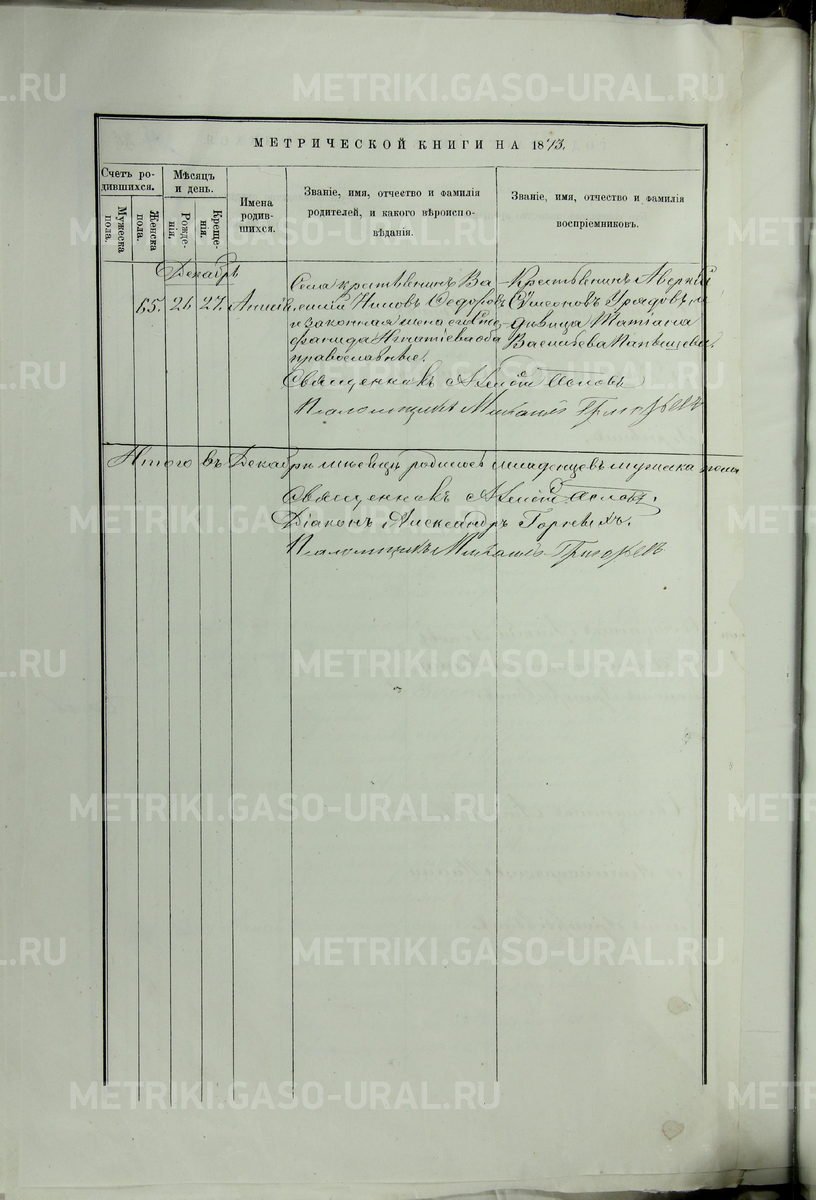 МЕТРИЧЕСКОЙ КНИГИ НА 1873.
Счетъ ро-
дившихся.
Мѣсяцъ
и день.
Имена
родив-
шихся.
Званіе, имя, отчество и фамилія
родителей, и какого вѣроиспо-
вѣданія.
Званіе, имя, отчество и фамилія
воспріемниковъ.
Мужеска
пола.
Женска
пола.
Рожде-
нія.
Креще-
нія.
Декабрь
65. 26 27.
Села крестьянинъ Ва-
силій Ниловъ Ѳедоровъ
и законная жена его
Игнатіева оба
православные.
Крестьянинъ
Симеоновъ и
дѣвица Татіана
Васильева
Священникъ
Псаломщикъ Михаилъ Григорьевъ
Итого въ Декабрѣ мѣсяцѣ родилось младенцевъ мужеска пола
Священникъ
Діаконъ Александръ
Псаломщикъ Михаилъ Григорьевъ
METRIKI.GASO-URAL.RU